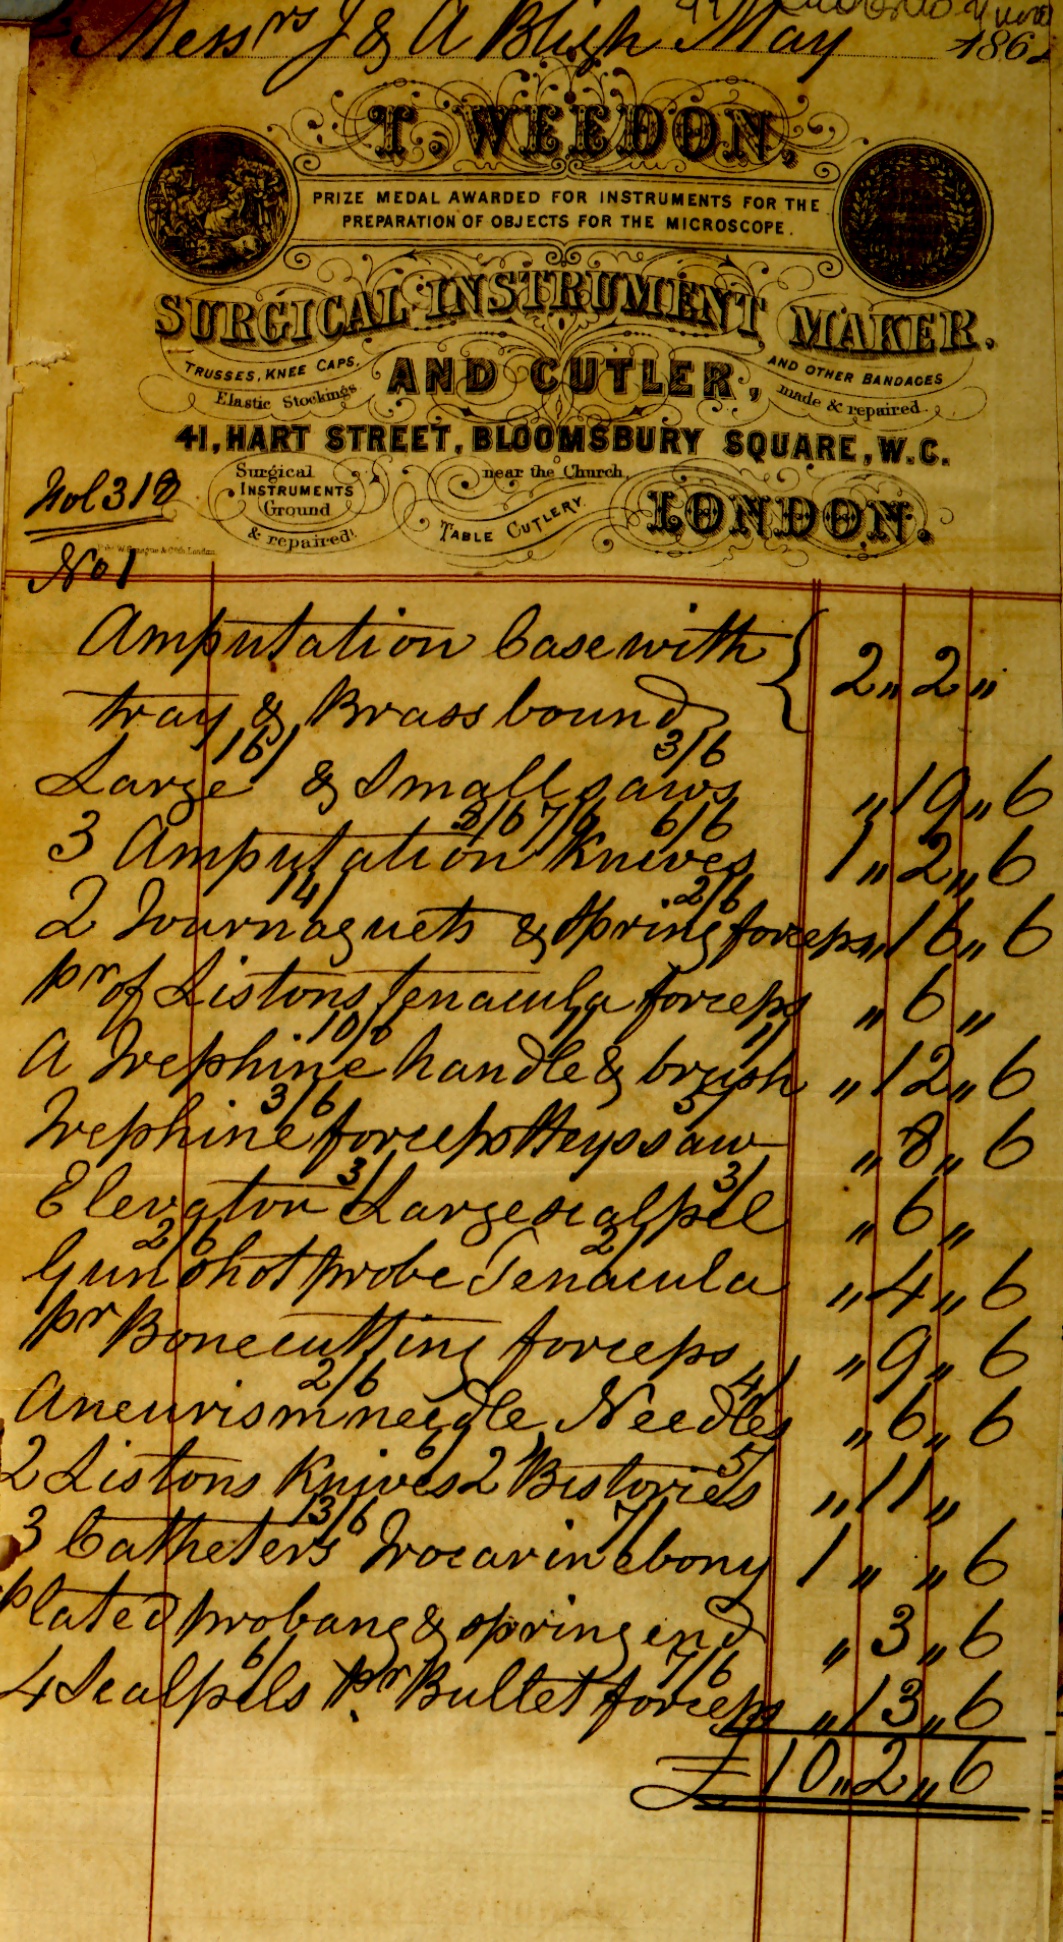 Messrs J & A Bligh May 186
T. WEEDON,
PRIZE MEDAL AWARDED FOR INSTRUMENTS FOR THE
PREPARATION OF OBJECTS FOR THE MICROSCOPE.
SURGICAL INSTRUMENT MAKER,
TRUSSES, KNEE CAPS, AND CUTLER, AND OTHER BANDAGES
Elastic Stockings made & repaired
41, HART STREET, BLOOMSBURY SQUARE, W.C.
Surgical INSTRUMENTS Ground & repaired near the Church, TABLE CUTLERY. LONDON.
Fol 318
No 1
Amputation Case with
tray & Brass bound 2 " 2 "
16/ 3/6
Large & Small saws " 19 " 6
8/6 7/6 6/6
3 Amputation Knives 1 " 2 " 6
14/ 2/6
2 Tournaquets & Spring forceps " 16 " 6
pr of Listons Tenacula forceps " 6 "
10/6
A Trephine handle & brush " 12 " 6
3/6 5/
Trephine forceps Heys saw " 8 " 6
3/ 3/
Elevator Large scalpel " 6 "
2/6 2/
Gun shot probe Tenacula " 4 " 6
pr Bonecutting forceps " 9 " 6
2/6 4/
Aneurism needle, Needles " 6 " 6
6/ 5/
2 Listons Knives 2 Bistories " 11 "
13/6 7/
3 Catheters Trocar in ebony 1 " " 6
plated probang & spring end " 3 " 6
6/ 7/6
4 Scalpels pr Bullet forceps " 13 " 6
£10 " 2 " 6